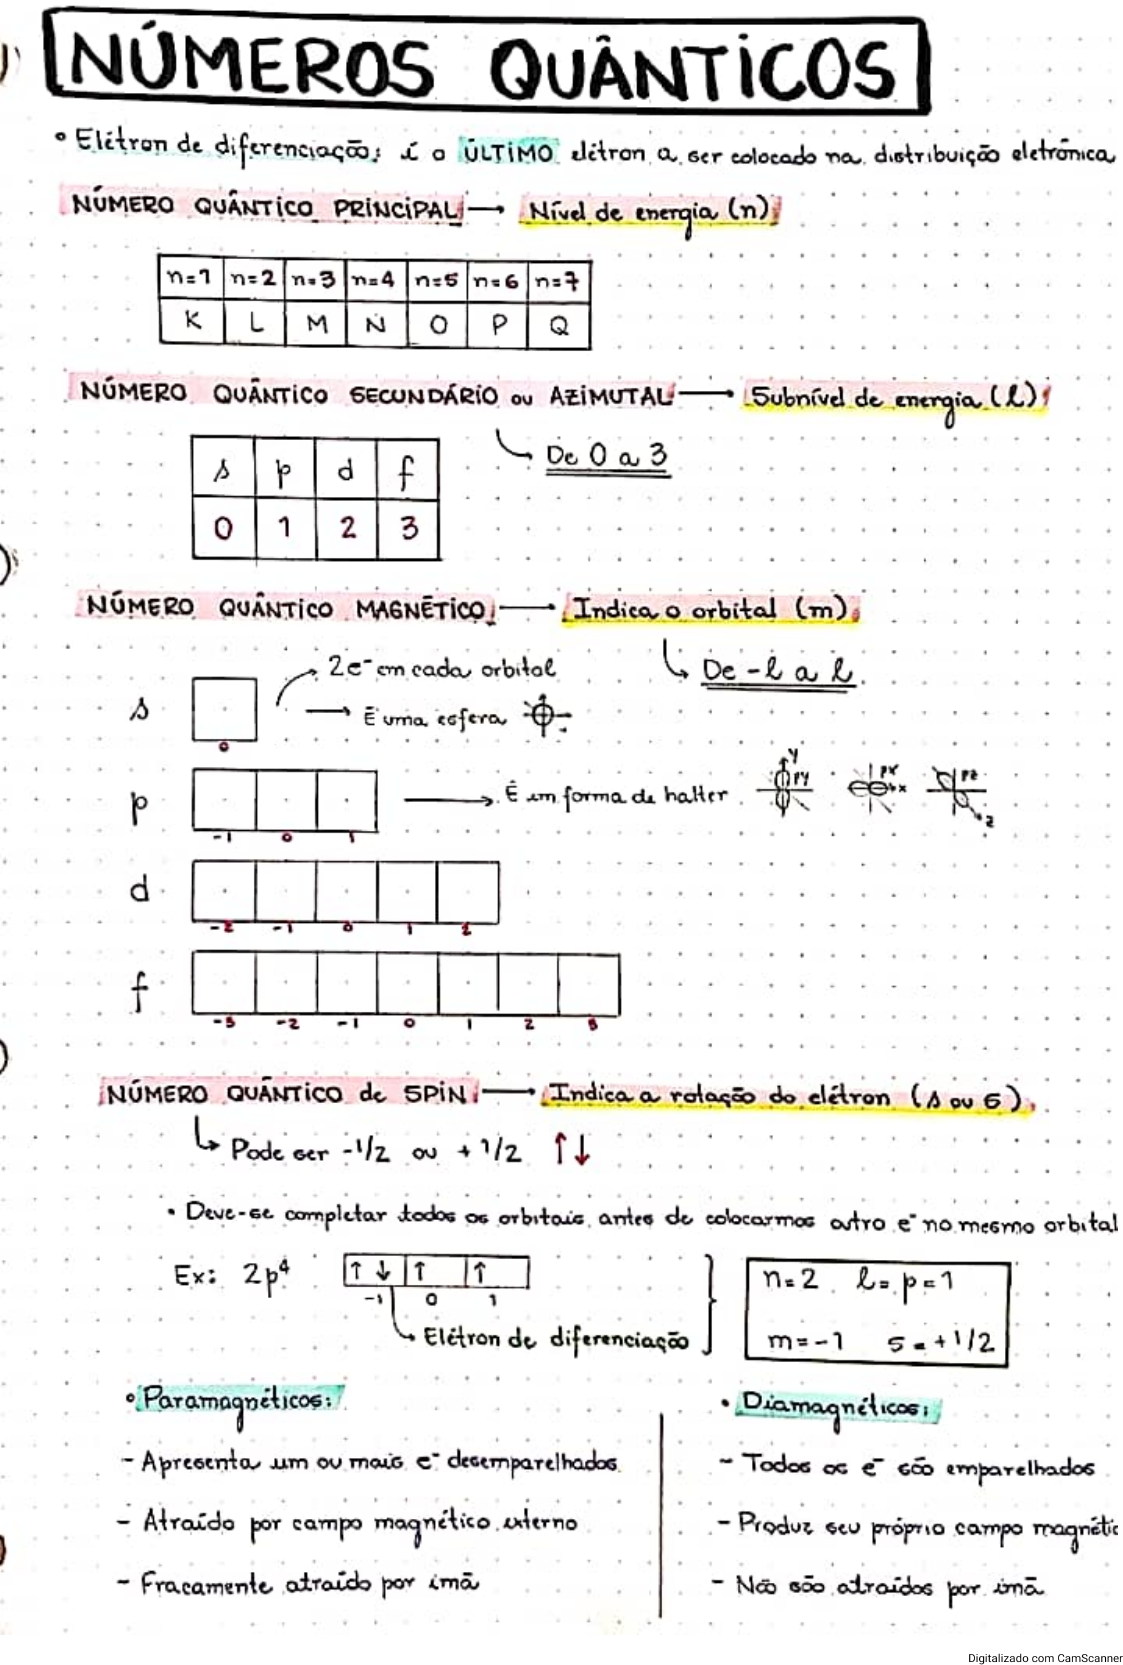 NÚMEROS QUÂNTICOS
• Elétron de diferenciação: é o ÚLTIMO elétron a ser colocado na distribuição eletrônica
NÚMERO QUÂNTICO PRINCIPAL → Nível de energia (n)
n=1 n=2 n=3 n=4 n=5 n=6 n=7
K L M N O P Q
NÚMERO QUÂNTICO SECUNDÁRIO ou AZIMUTAL → Subnível de energia (l)
↳ De 0 a 3
s p d f
0 1 2 3
NÚMERO QUÂNTICO MAGNÉTICO → Indica o orbital (m)
↳ De -l a l
s
0
→ 2e⁻ em cada orbital
→ É uma esfera
p
-1 0 1
→ É em forma de halter
Y
PY
PX
x
PZ
z
d
-2 -1 0 1 2
f
-3 -2 -1 0 1 2 3
NÚMERO QUÂNTICO de SPIN → Indica a rotação do elétron (s ou S)
↳ Pode ser -1/2 ou +1/2 ↑↓
• Deve-se completar todos os orbitais antes de colocarmos outro e⁻ no mesmo orbital
Ex: 2p⁴ ↑↓ ↑ ↑
-1 0 1
↳ Elétron de diferenciação
n=2 l=p=1
m=-1 s=+1/2
• Paramagnéticos:
- Apresenta um ou mais e⁻ desemparelhados
- Atraído por campo magnético externo
- Fracamente atraído por imã
• Diamagnéticos:
- Todos os e⁻ são emparelhados
- Produz seu próprio campo magnétic
- Não são atraídos por imã
Digitalizado com CamScanner